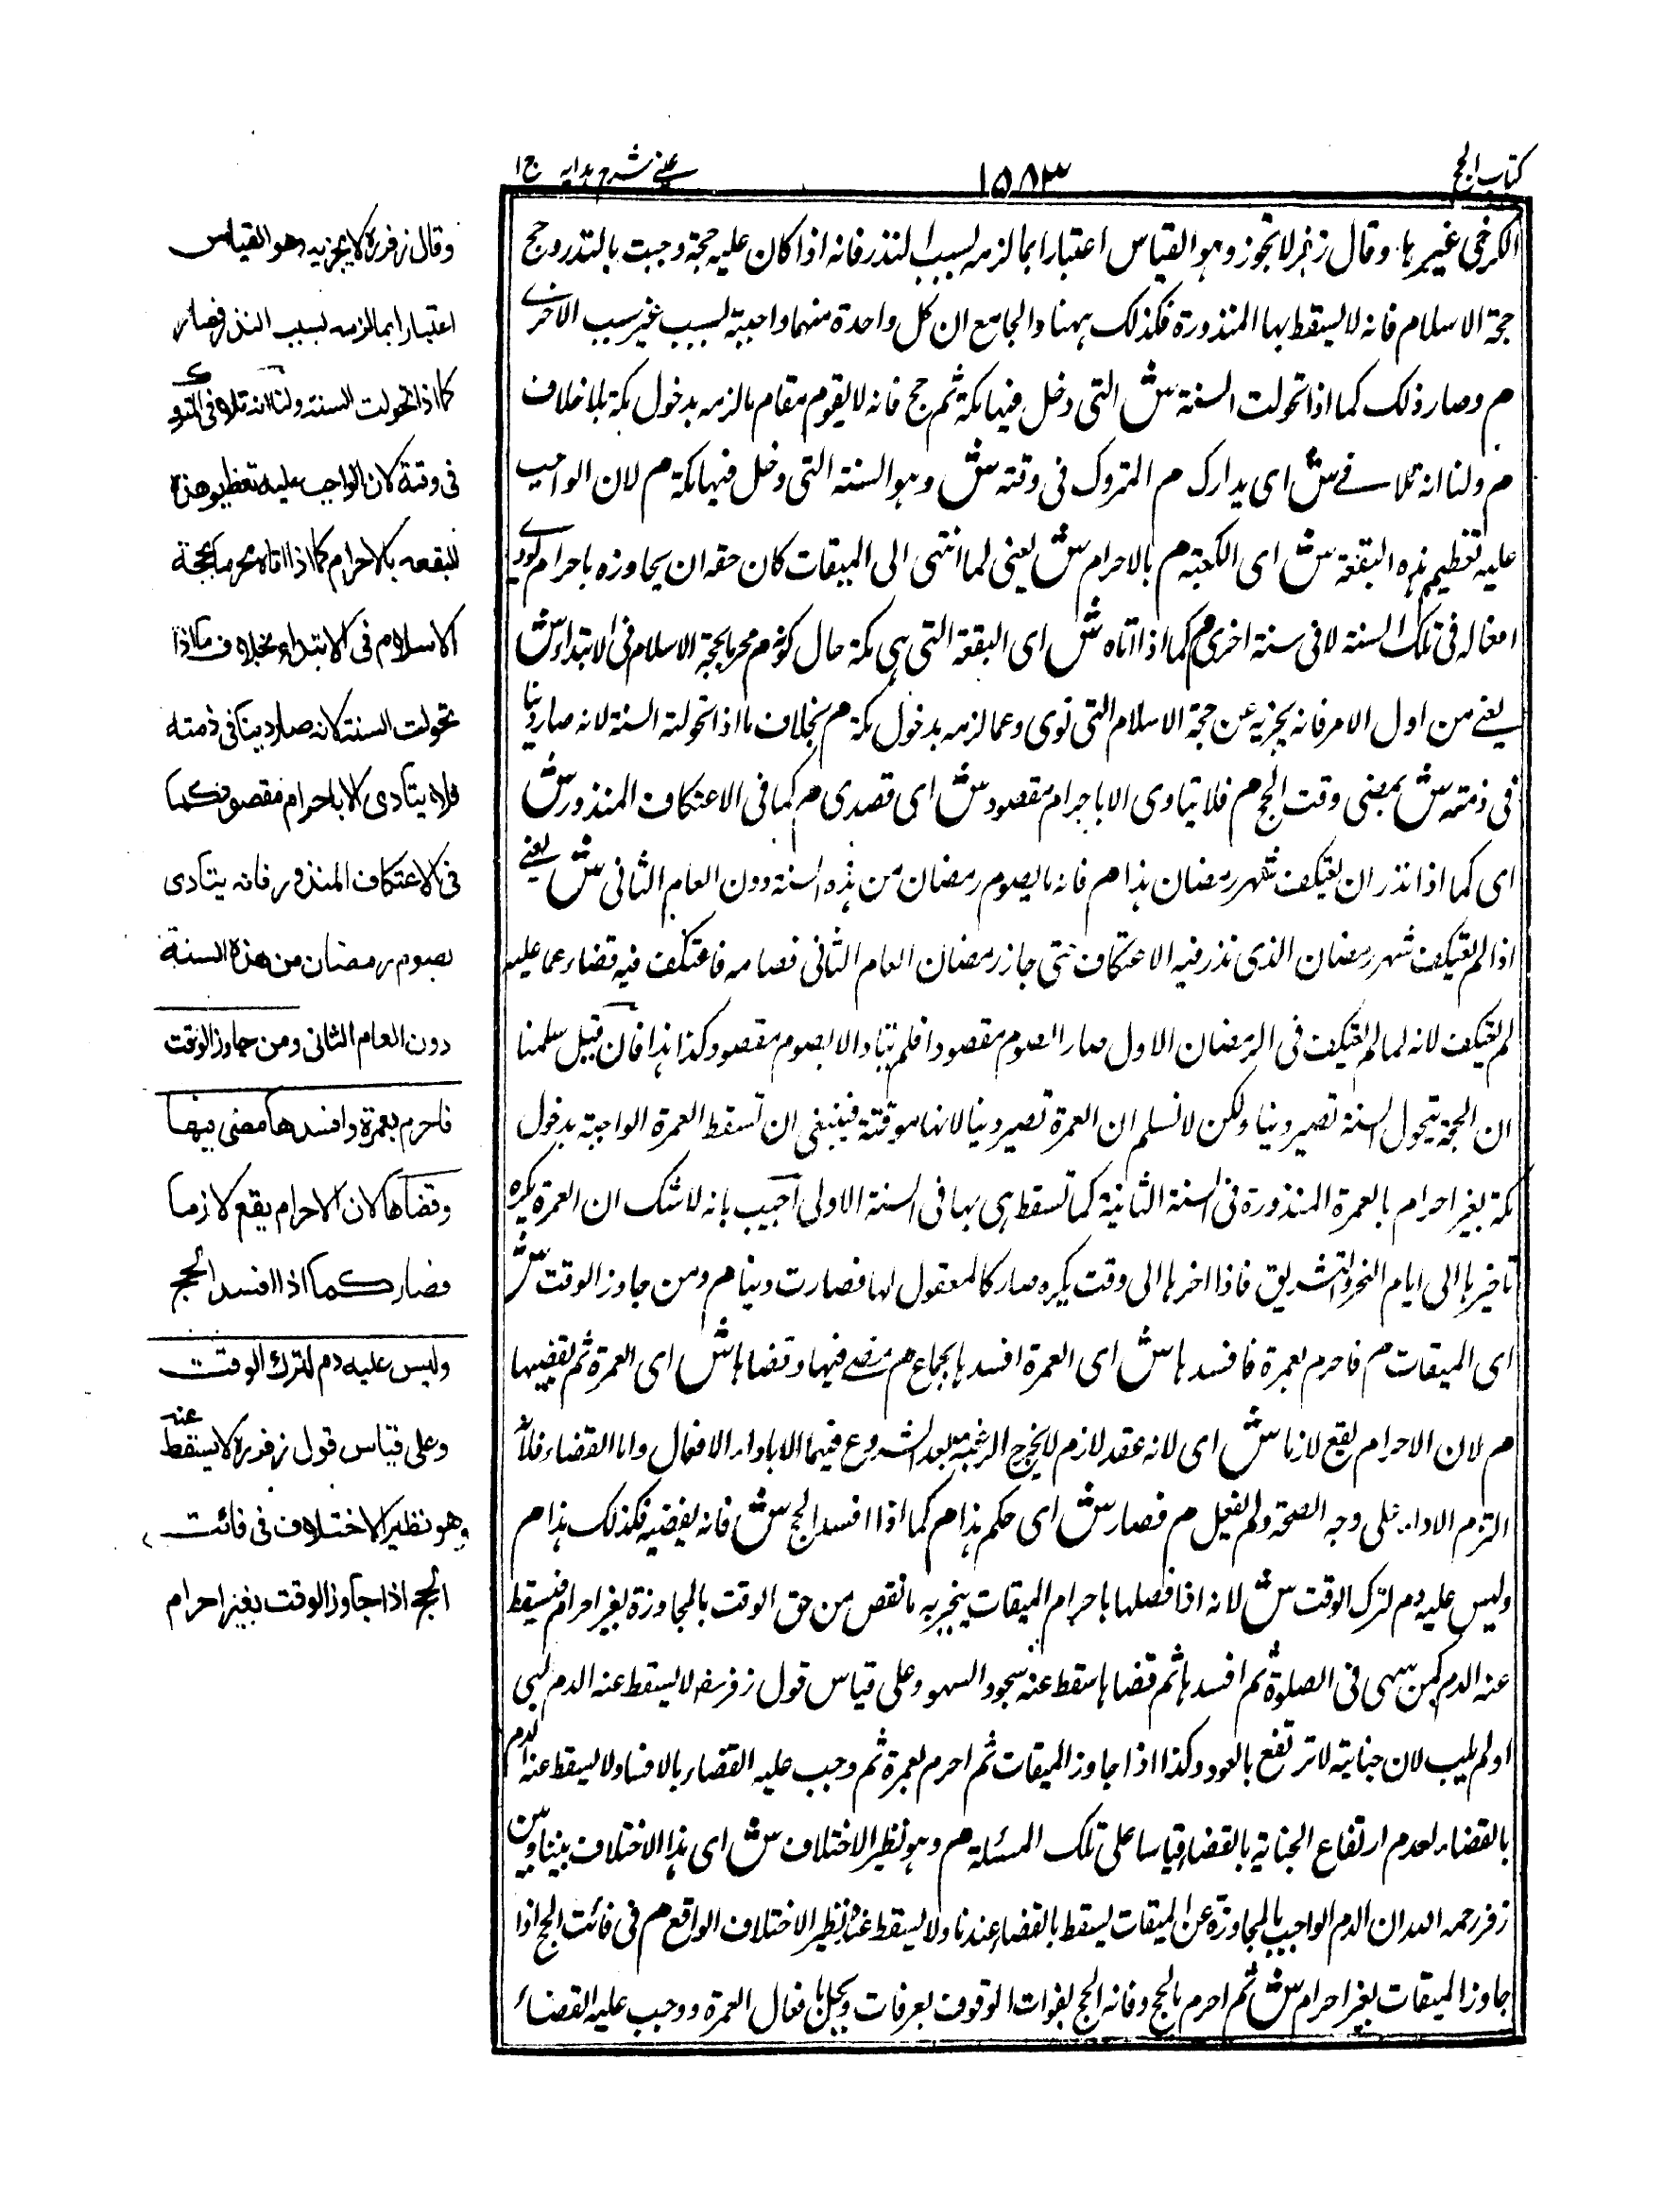 كتاب الحج
١٥٨٣
عيني شرح هدايه ج١
الكرخي غيرها وقال زفر لا تجوز وهو القياس اعتبارا بما لزمه بسبب النذر فانه اذا كان عليه حجة وجبت بالنذر وحج
حجة الاسلام فانه لا يسقط بها المنذورة فكذلك ههنا والجامع ان كل واحدة منهما واجبة بسبب غير سبب الاخرى
م وصار ذلك كما اذا تحولت السنة ش التى دخل فيها مكة ثم حج فانه لا يقوم مقام ما لزمه بدخول مكة بلا خلاف
م ولنا انه تلافى ش اى يدارك م المتروك فى وقته ش وهو السنة التى دخل فيها مكة م لان الواجب
عليه تعظيم هذه البقعة ش اى الكعبة م بالاحرام ش يعنى لما انتهى الى الميقات كان حقه ان يجاوزه باحرام
افعاله فى تلك السنة لا فى سنة اخرى م كما اذا اتاه ش اى البقعة التى هى مكة حال كونه م محرما بحجة الاسلام فى الابتداء ش
يعنى من اول الامر فانه يجزيه عن حجة الاسلام التى نوى وعما لزمه بدخول مكة م بخلاف ما اذا تحولت السنة لانه صار دينا
فى ذمته ش بمضى وقت الحج م فلا يتادى الا باحرام مقصود ش اى قصدى م كما فى الاعتكاف المنذور ش
اى كما اذا نذر ان يعتكف شهر رمضان هذا م فانه يصوم رمضان من هذه السنة دون العام الثانى ش يعنى
اذا لم يعتكف شهر رمضان الذى نذر فيه الاعتكاف حتى جاز رمضان العام الثانى فصامه فاعتكف فيه قضاء عما عليه
لم يعتكف لانه لما لم يعتكف فى الرمضان الاول صار الصوم مقصودا فلم يتاد الا بصوم مقصود كذا هذا فان قيل سلمنا
ان الحجة بتحول السنة تصير دينا ولكن لا نسلم ان العمرة تصير دينا لانها موقتة فينبغى ان تسقط العمرة الواجبة بدخول
مكة بغير احرام بالعمرة المنذورة فى السنة الثانية كما تسقط هى بها فى السنة الاولى اجيب بانه لا شك ان العمرة يكره
تاخيرها الى ايام النحر والتشريق فاذا اخرها الى وقت يكره صار كالمعقول لها فصارت دينا م ومن جاوز الوقت ش
اى الميقات م فاحرم بعمرة فافسدها ش اى العمرة افسدها بجماع م مضى فيها وقضاها ش اى العمرة ثم يقضيها
م لان الاحرام يقع لازما ش اى لانه عقد لازم لا يخرج المرء عنه بعد الشروع فيهما الا باداء الافعال واما القضاء فلانه
التزم الاداء على وجه الصحة ولم يفعل م فصار ش اى حكم هذا م كما اذا افسد الحج ش فانه يقضيه فكذلك هذا م
وليس عليه دم لترك الوقت ش لانه اذا فصلها باحرام الميقات ينجبر به ما نقص من حق الوقت بالمجاوزة بغير احرام فيسقط
عنه الدم كمن سهى فى الصلوة ثم افسدها ثم قضاها سقط عنه سجود السهو وعلى قياس قول زفر رضه لا يسقط عنه الدم لبى
او لم يلب لان جنايته لا ترتفع بالعود وكذا اذا جاوز الميقات ثم احرم بعمرة ثم وجب عليه القضاء بالافساد لا يسقط عنه الدم
بالقضاء لعدم ارتفاع الجناية بالقضاء قياسا على تلك المسئلة م وهو نظير الاختلاف ش اى هذا الاختلاف بيننا وبين
زفر رحمه الله ان الدم الواجب بالمجاوزة عن الميقات يسقط بالقضاء عندنا ولا يسقط عنده نظير الاختلاف الواقع م فى فائت الحج اذا
جاوز الميقات بغير احرام ش ثم احرم بالحج وفاته الحج بفوات الوقوف بعرفات ويحل بافعال العمرة ووجب عليه القضاء
وقال زفر ره لا يجزيه وهو القياس
اعتبارا بما لزمه بسبب النذر فصار
كما اذا تحولت السنة ولنا انه تلافى المتروك
فى وقته لان الواجب عليه تعظيم هذه
البقعه بالاحرام كما اذا اتاه محرما بحجة
الاسلام فى الابتداء بخلاف ما اذا
تحولت السنة لانه صار دينا فى ذمته
فلا يتأدى الا باحرام مقصود كما
فى الاعتكاف المنذور فانه يتأدى
بصوم رمضان من هذه السنة
دون العام الثانى ومن جاوز الوقت
فاحرم بعمرة وافسدها مضى فيها
وقضاها لان الاحرام يقع لازما
فصار كما اذا افسد الحج
وليس عليه دم لترك الوقت
وعلى قياس قول زفر ره لا يسقط عنه
وهو نظير الاختلاف فى فائت
الحج اذا جاوز الوقت بغير احرام